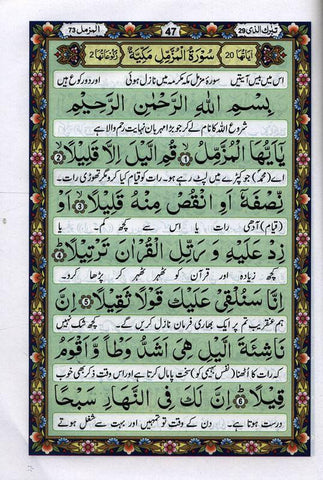 تبٰرك الذی 29 47 المزمل 73
اٰیَاتُهَا 20 سُوْرَةُ الْمُزَّمِّلِ مَكِّیَّةٌ رُكُوْعَاتُهَا 2
اس میں بیس آیتیں سورۂ مزمل مکہ مکرمہ میں نازل ہوئی اور دو رکوع ہیں
بِسْمِ اللهِ الرَّحْمٰنِ الرَّحِیْمِ
شروع اللہ کا نام لے کر جو بڑا مہربان نہایت رحم والا ہے
یٰۤاَیُّهَا الْمُزَّمِّلُ ① قُمِ الَّیْلَ اِلَّا قَلِیْلًا ②
اے (محمد) جو کپڑے میں لپٹ رہے ہو۔ رات کو قیام کیا کرو مگر تھوڑی رات۔
نِّصْفَهٗۤ اَوِ انْقُصْ مِنْهُ قَلِیْلًا ③ اَوْ
(قیام) آدھی رات یا اس سے کچھ کم۔ یا
زِدْ عَلَیْهِ وَ رَتِّلِ الْقُرْاٰنَ تَرْتِیْلًا ④
کچھ زیادہ اور قرآن کو ٹھہر ٹھہر کر پڑھا کرو۔
اِنَّا سَنُلْقِیْ عَلَیْكَ قَوْلًا ثَقِیْلًا ⑤ اِنَّ
ہم عنقریب تم پر ایک بھاری فرمان نازل کریں گے۔ کچھ شک نہیں
نَاشِئَةَ الَّیْلِ هِیَ اَشَدُّ وَطْاً وَّ اَقْوَمُ
کہ رات کا اٹھنا (نفس بہیمی کو) سخت پامال کرتا ہے اور اس وقت ذکر بھی خوب
قِیْلًا ⑥ اِنَّ لَكَ فِی النَّهَارِ سَبْحًا
درست ہوتا ہے۔ دن کے وقت تو تمہیں اور بہت سے شغل ہوتے